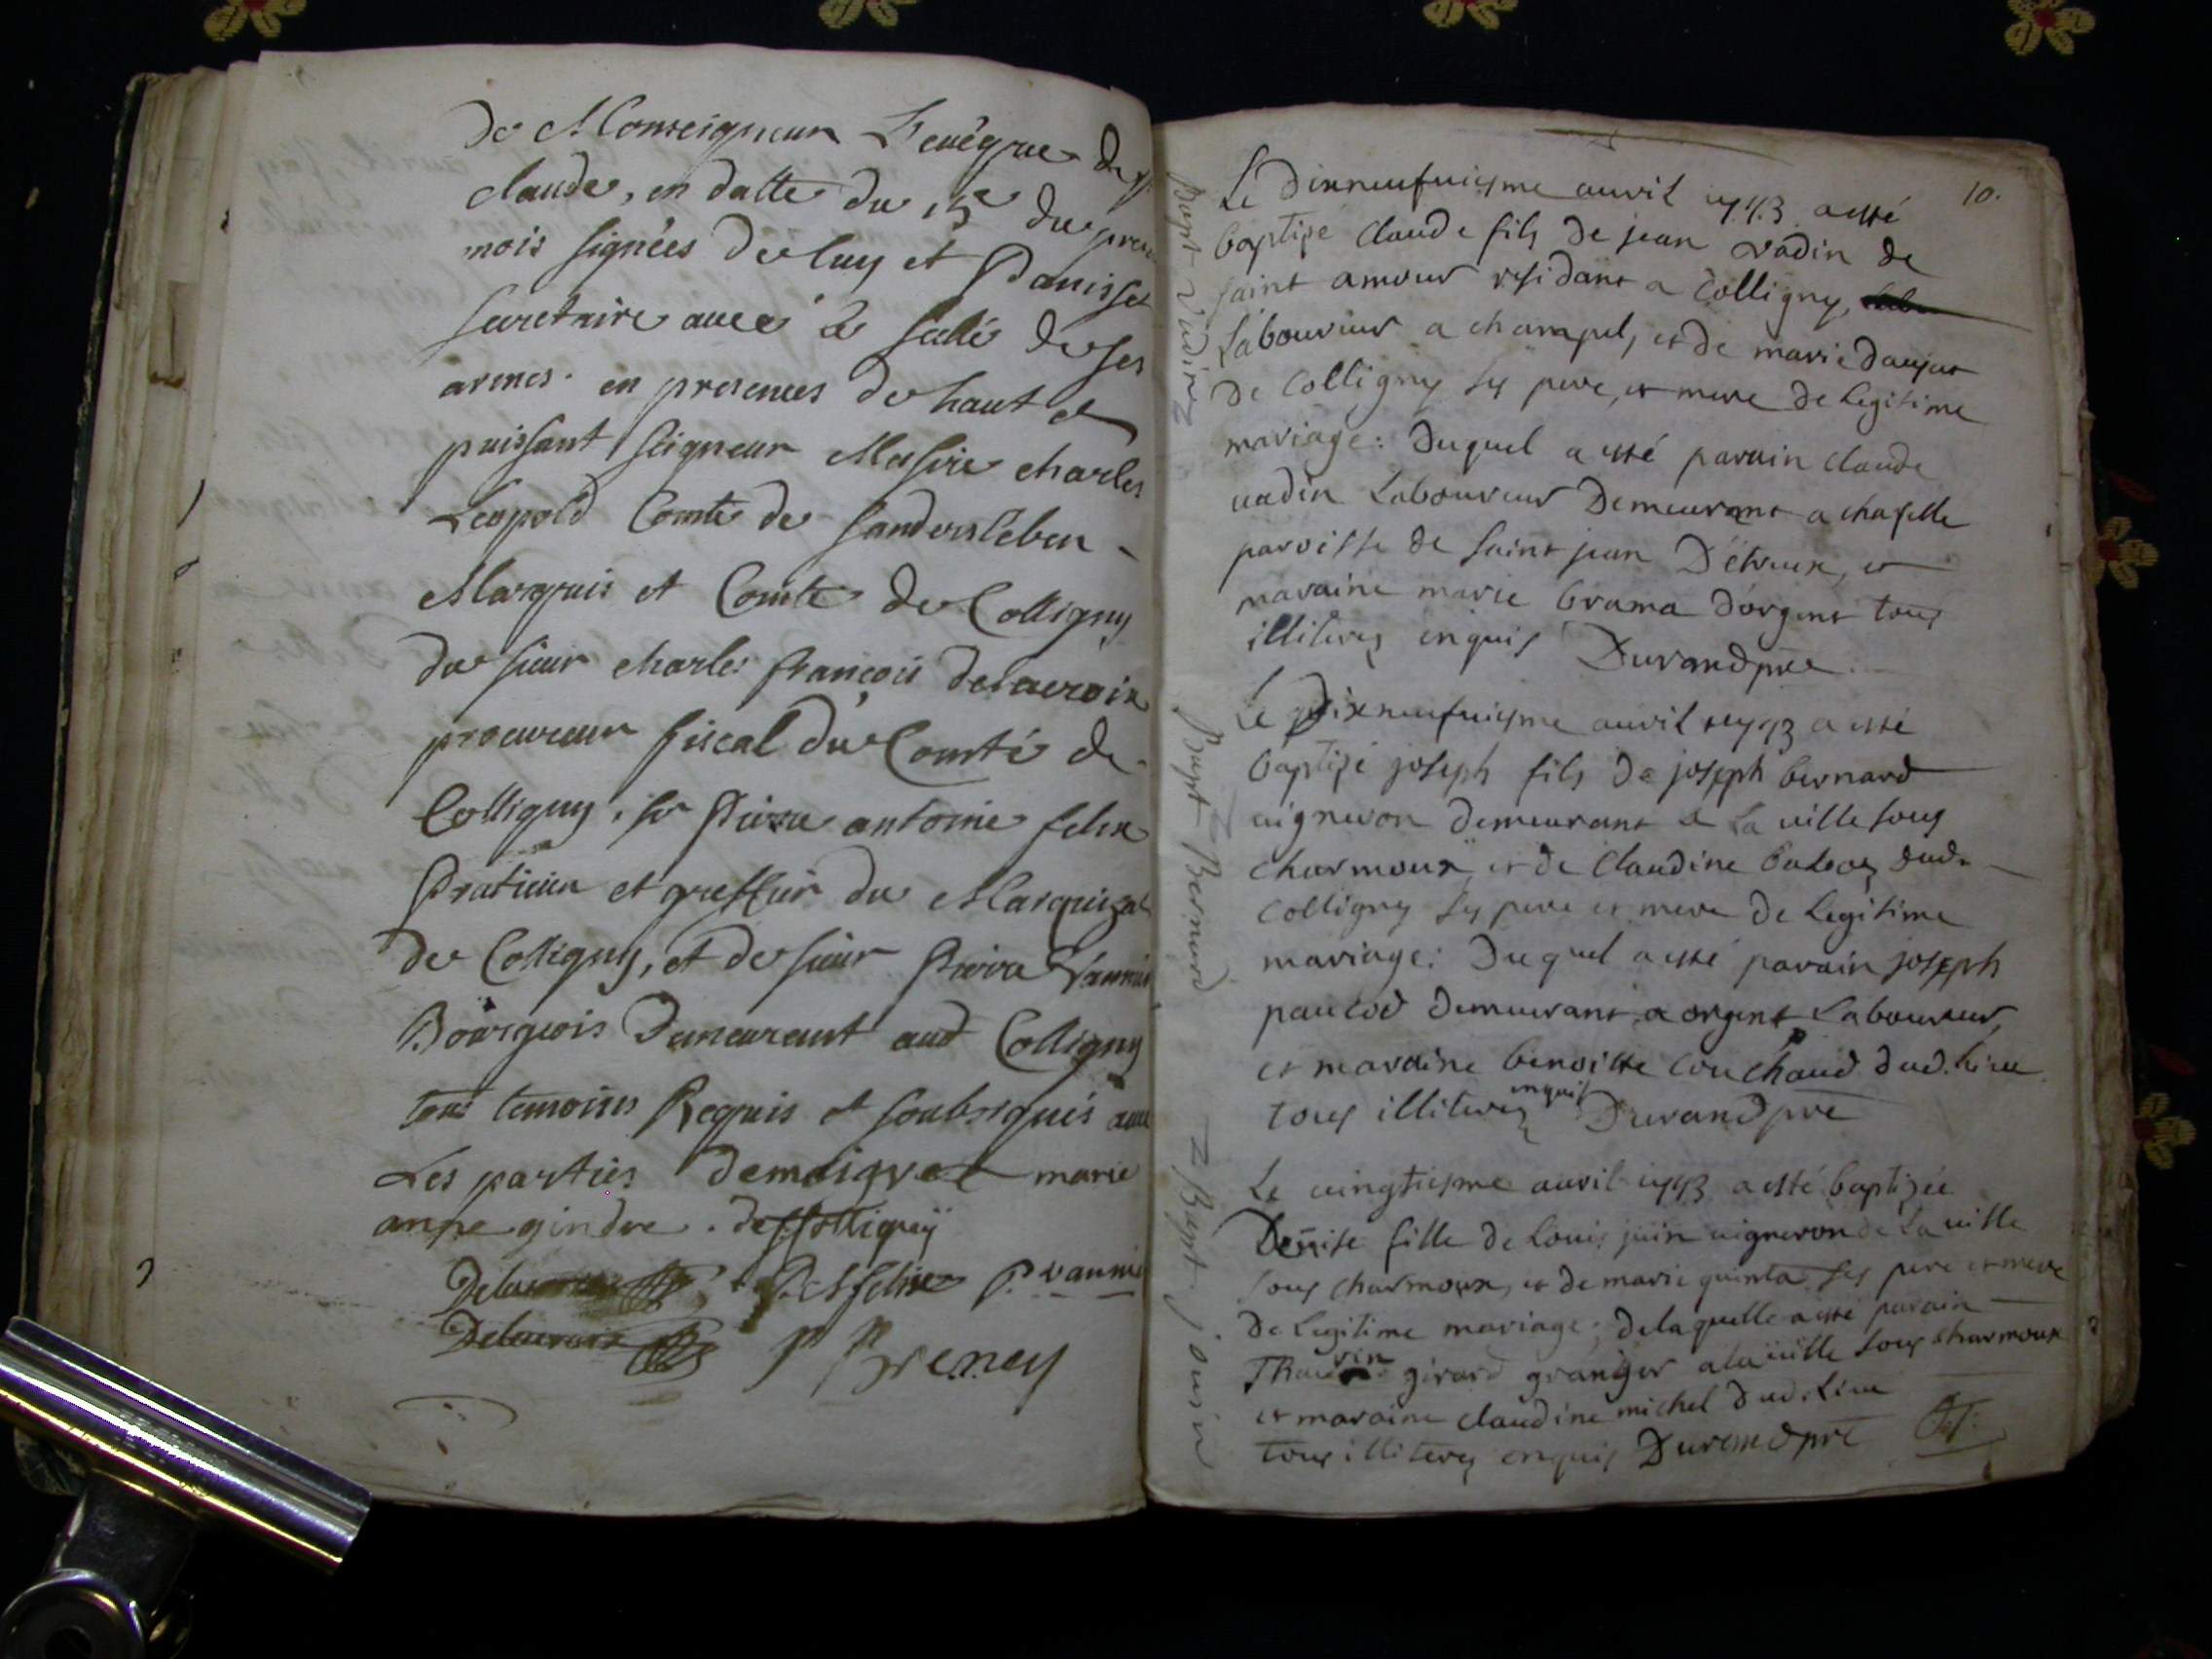 De Monseigneur L'evêque de St
claude, en datte du 15e du present
mois signées de luy et Panisset
secretaire avec le scellé de ses
armes. en presences de haut et
puissant seigneur Messire charles
Leopold Comte de Sandersleben
Marquis et Comte de Colligny
du sieur charles françois delacroix
procureur fiscal du Comté de
Colligny, sr Pierre antoine felix
Praticien et greffier du Marquizat
de Colligny, et de sieur Pierre Vannier
Bourgeois Demeurant aud Colligny
tous temoins Requis et soubsignés avec
Les parties demoigret marie
anne gindre. deColligny
Delacroix P. A felix P. vannier
Delacroix P Breney
10.
Bapt Vadin
Le Dixneufuiesme auril 1743 a esté
baptisé Claude fils de jean vadin de
saint amour residant a Colligny,
Laboureur a champel, et de marie daujat
de Colligny ses pere, et mere de legitime
mariage: Duquel a esté parain claude
uadin Laboureur Demeurant a chapelle
paroisse de saint jean D'étreux, et
maraine marie brama d'orgent tous
illiteres enquis Durand pre
Bapt Bernard
Le Dixneufuiesme auril 1743 a esté
baptisé joseph fils de joseph bernard
uigneron demeurant a La uille sous
charmoux, et de Claudine dud.
Colligny ses pere et mere de legitime
mariage: Duquel a esté parain joseph
paucod demeurant a orgent Laboureur,
et maraine benoitte Couchaud dud. lieu
tous illiteres enquis Durand pre
Bapt jouin
Le uingtiesme auril 1743 a esté baptizée
Denise fille de Louis juin uigneron de La uille
sous charmoux, et de marie quinta ses pere et mere
de legitime mariage; delaquelle a esté parain
girard granger a la uille sous charmoux
et maraine claudine michel dud. Lieu
tous illiteres enquis Durand pre